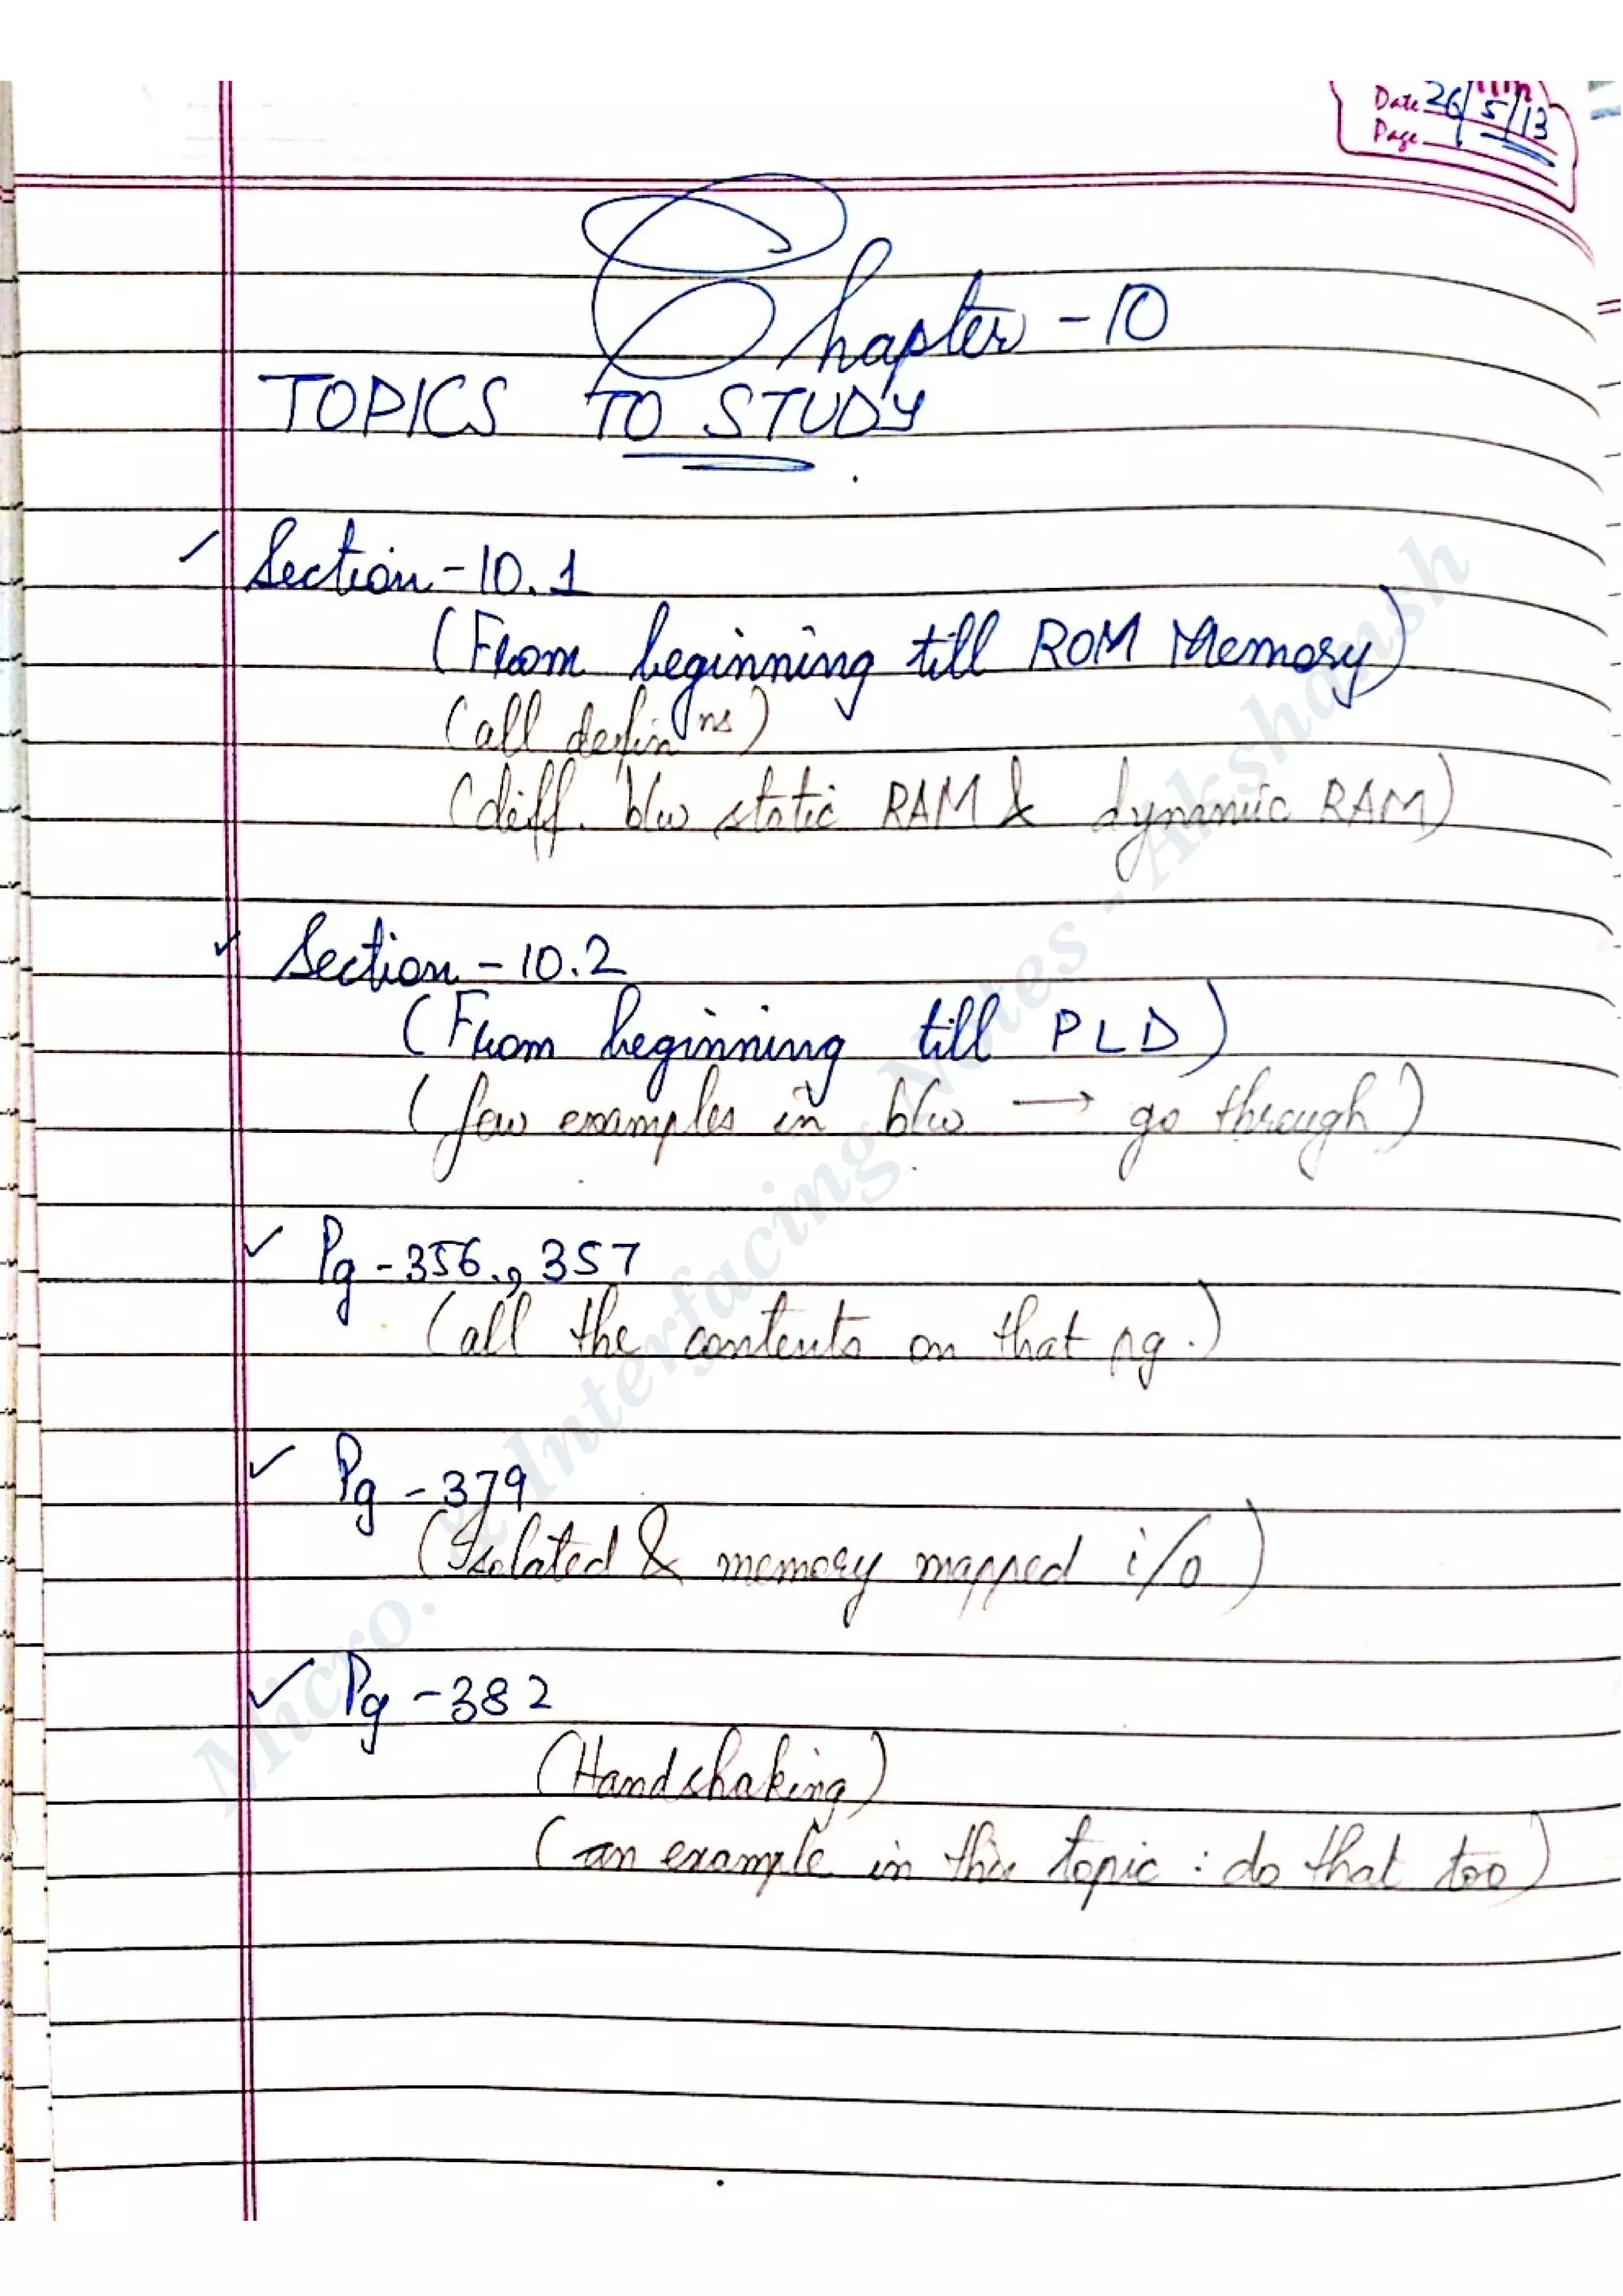 Date 26/5/13
Page
Chapter - 10
TOPICS TO STUDY
Section - 10.1
(From beginning till ROM Memory)
(all definns)
(diff. b/w static RAM & dynamic RAM)
Section - 10.2
(From beginning till PLD)
(few examples in b/w → go through)
Pg - 356., 357
(all the contents on that pg.)
Pg - 379
(Isolated & memory mapped i/o)
Pg - 382
(Handshaking)
(an example in this topic : do that too)
Micro. & Interfacing Notes - Akshansh